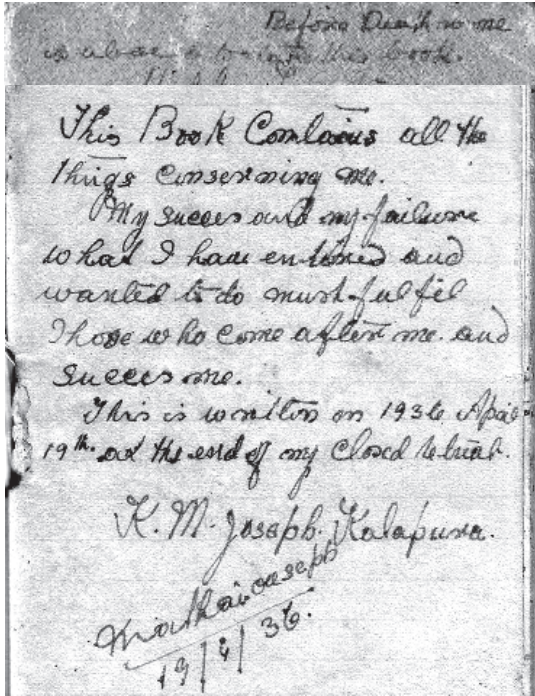 Before Death to me
this book.
This Book Contains all the
things conserning me.
My succes and my failure
what I have entired and
wanted to do must fulfil
Those who come after me and
succees me.
This is written on 1936 April
19th at the end of my closed retreat.
K. M. Joseph. Kalapura.
Mathai Ouseph
19/4/36.